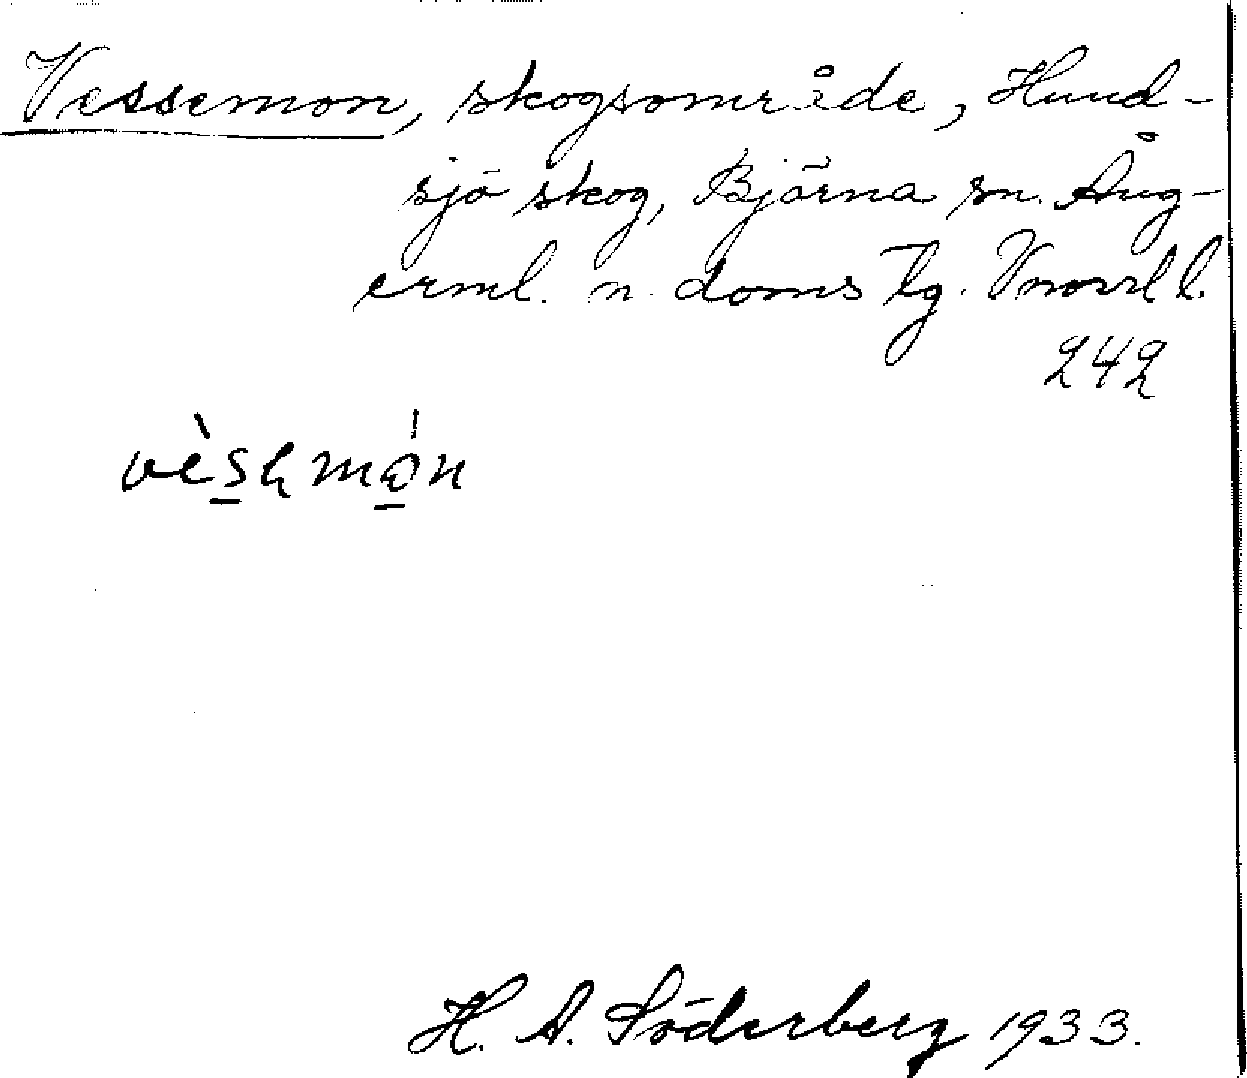 Vessemon, skogsområde, Hund-
sjö skog, Björna sn. Ång-
erml. n. doms Tg. Vnorrl l.
242
H. A. Söderberg 1933.